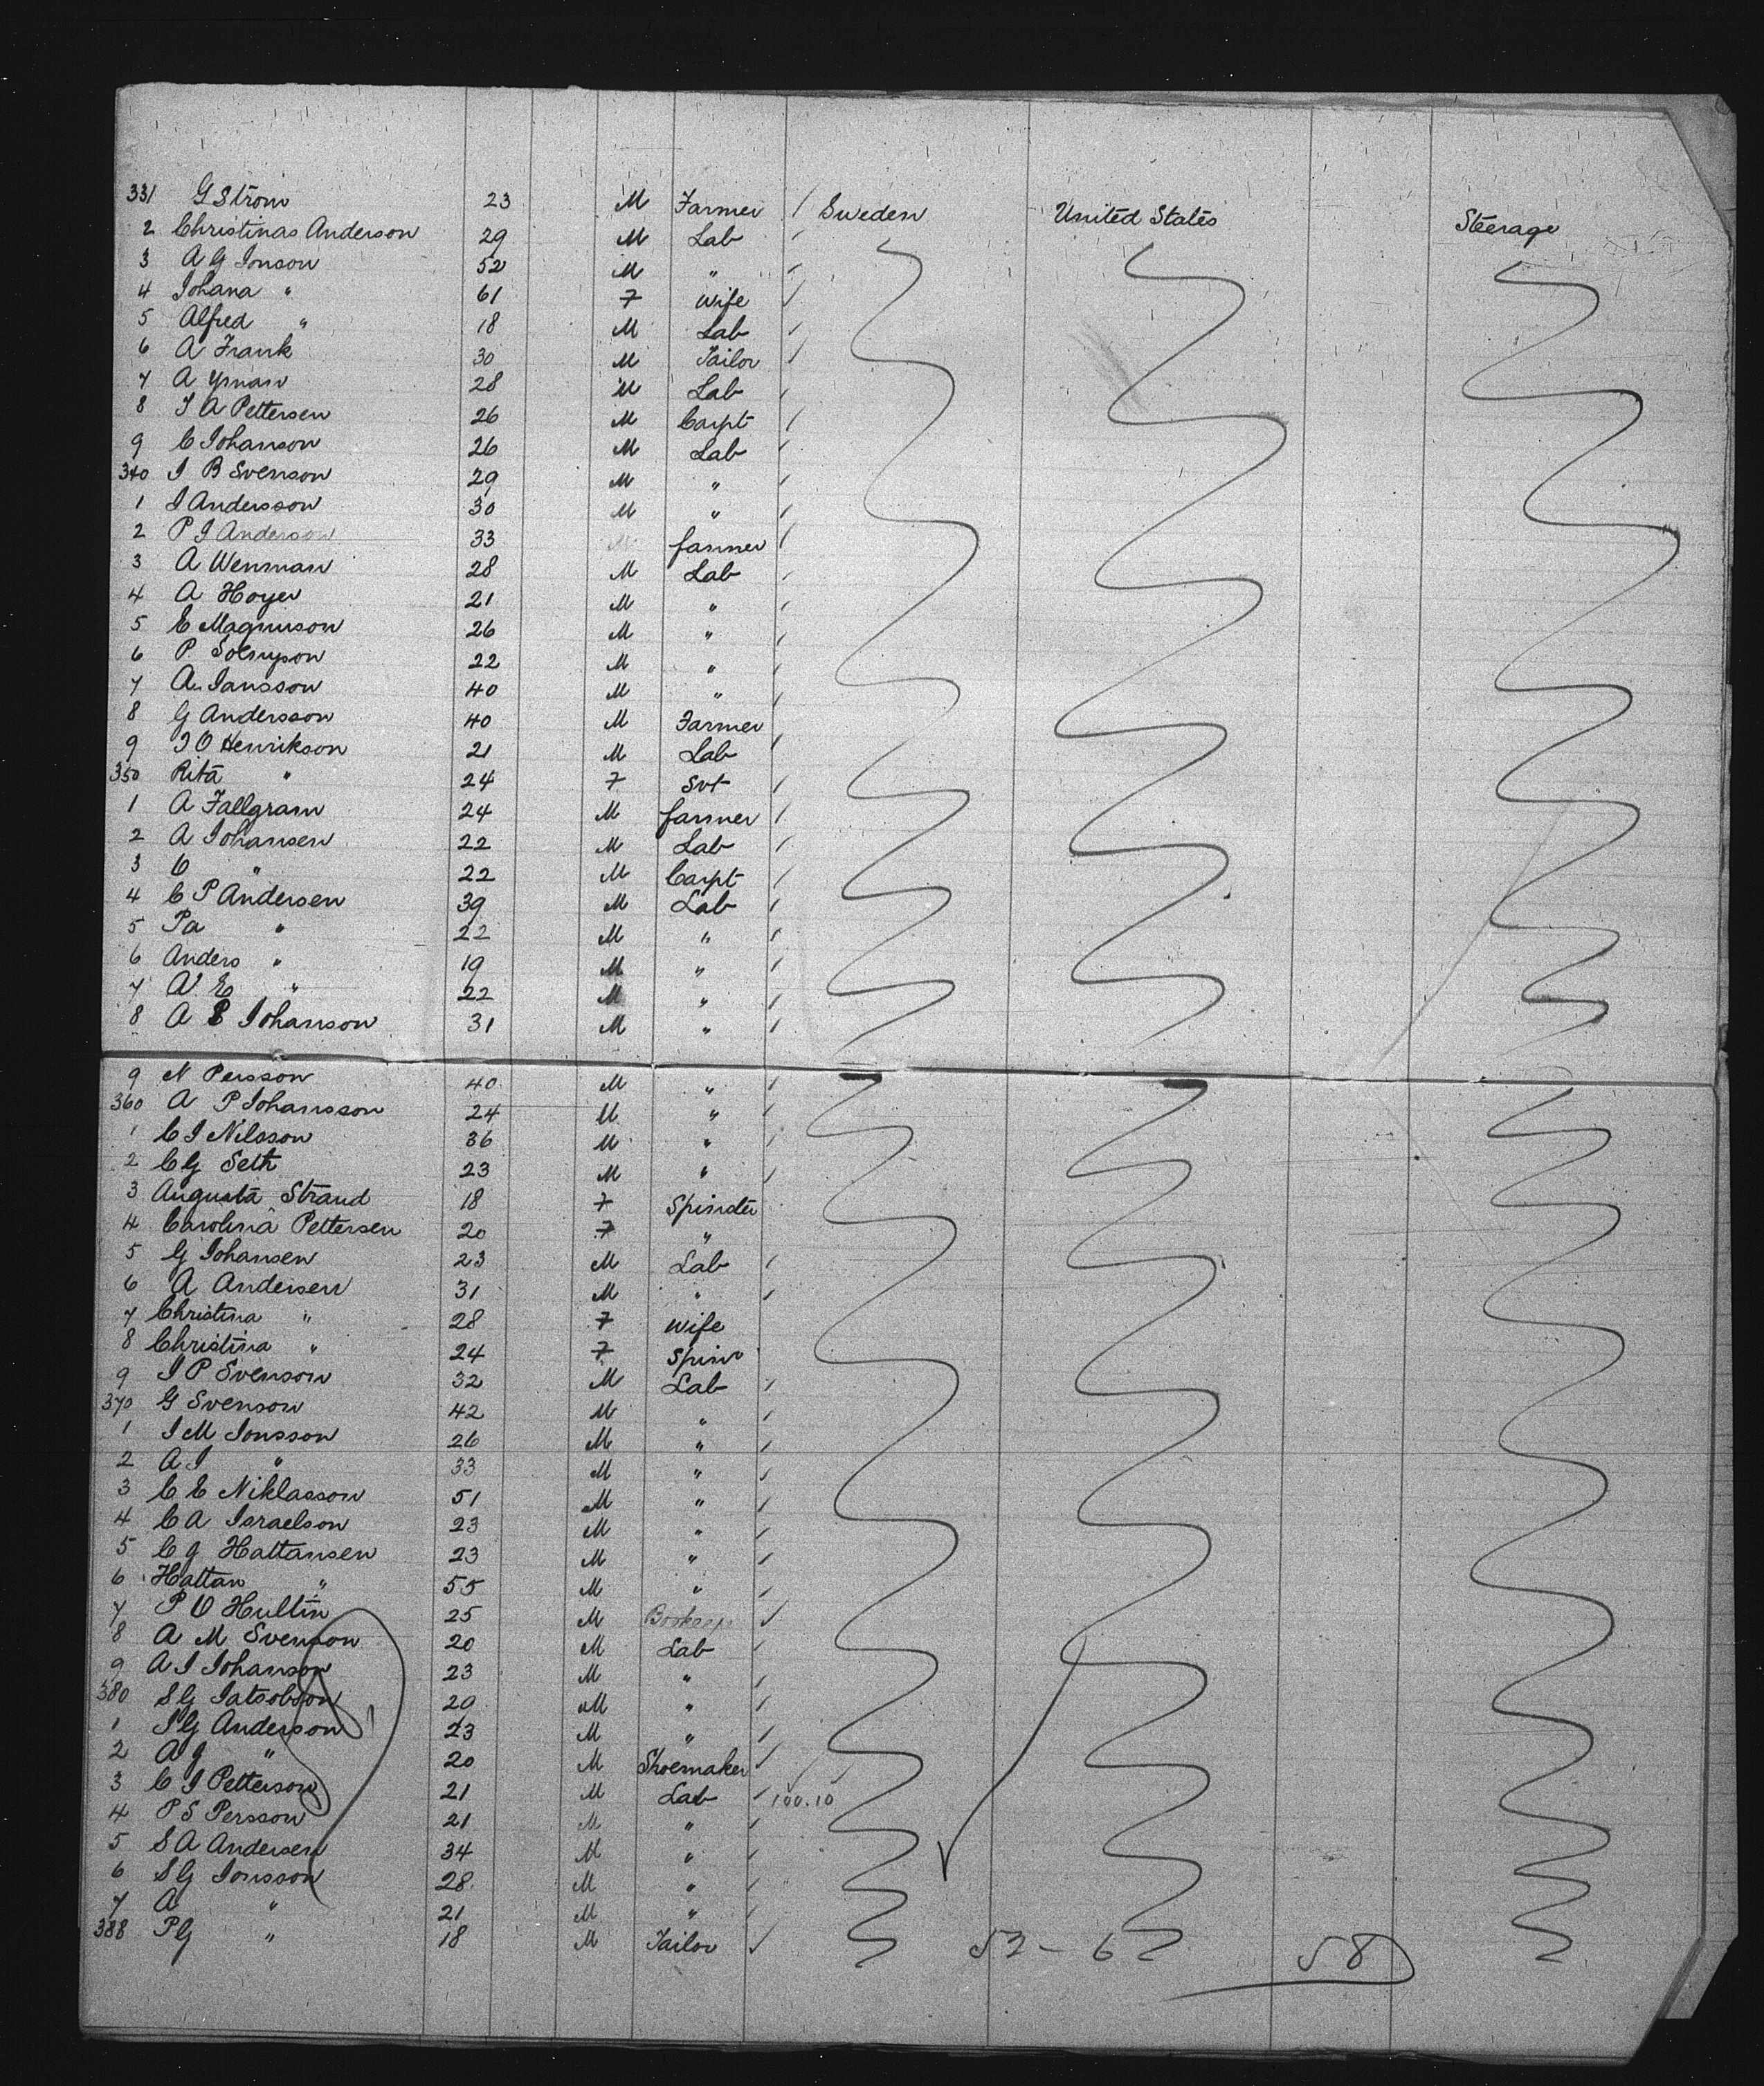 331 G Strom 23 M Farmer / Sweden United States Steerage
2 Christinas Anderson 29 M Lab /
3 A G Jonson 52 M " /
4 Johana " 61 F wife /
5 Alfred " 18 M Lab /
6 A Frank 30 M Tailor /
7 A Yman 28 M Lab /
8 J A Pettersen 26 M Carpt /
9 C Johanson 26 M Lab /
340 J B Svenson 29 M " /
1 J Andersson 30 M " /
2 P J Anderson 33 M farmer /
3 A Wenman 28 M Lab /
4 A Hoyer 21 M " /
5 E Magnuson 26 M " /
6 P 22 M " /
7 A Jansson 40 M " /
8 G Andersson 40 M Farmer /
9 J O Henrikson 21 M Lab /
350 Rita " 24 F Svt /
1 A Fallgram 24 M farmer /
2 A Johansen 22 M Lab /
3 O " 22 M Carpt /
4 C P Andersen 39 M Lab /
5 Pa " 22 M " /
6 Anders " 19 M " /
7 A E " 22 M " /
8 A P Johanson 31 M " /
9 N Persson 40 M " /
360 A P Johansson 24 M " /
1 C J Nilsson 36 M " /
2 C G Seth 23 M " /
3 Augusta Strand 18 F Spinster
4 Carolina Pettersen 20 F "
5 G Johansen 23 M Lab /
6 A Andersen 31 M " /
7 Christina " 28 F wife
8 Christina " 24 F Spinr
9 J P Svenson 32 M Lab /
370 G Svenson 42 M " /
1 J M Jonsson 26 M " /
2 A J " 33 M " /
3 C E Niklasson 51 M " /
4 C A Israelson 23 M " /
5 C G Hattansen 23 M " /
6 Hattan " 55 M " /
7 P O Hultin 25 M Bookeep /
8 A M Svenson 20 M Lab /
9 A J Johanson 23 M " /
380 S G Jatsobson 29 M " /
1 J G Anderson 23 M " /
2 A G " 20 M Shoemaker /
3 C J Petterson 21 M Lab / 100.10
4 P S Persson 21 M " /
5 S A Andersen 34 M " /
6 S G Jonsson 28 M " /
7 A " 21 M " /
388 P G " 18 M Tailor /
52 - 6 58